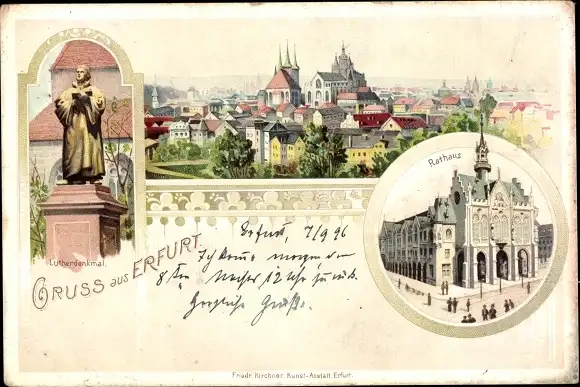 Rathaus
Lutherdenkmal.
GRUSS aus ERFURT.
Erfurt, 7/9 96
Ich komme morgen den
8ten Nachts 12 Uhr zurück.
Herzliche Grüße.
Friedr. Kirchner, Kunst-Anstalt, Erfurt.